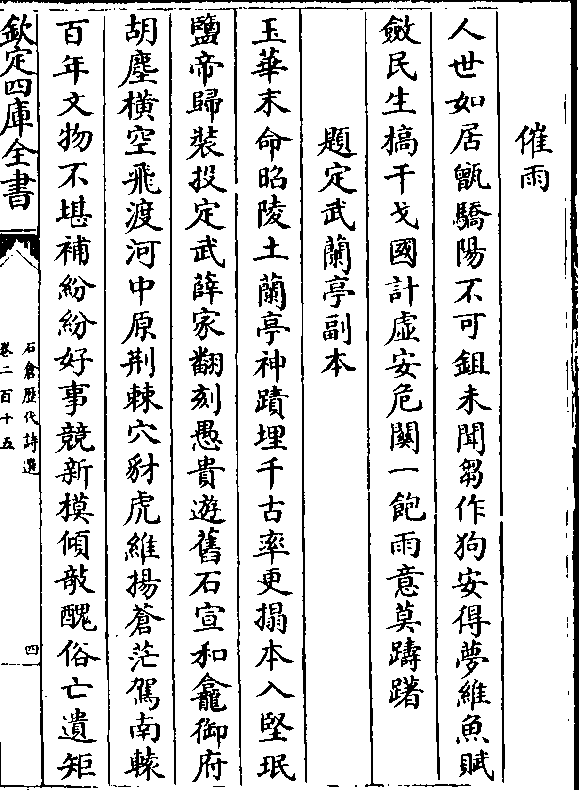 催雨
人世如居甑驕陽不可鉏未聞芻作狗安得夢維魚賦
斂民生槁干戈國計虛安危關一飽雨意莫躊躇
題定武蘭亭副本
玉華末命昭陵土蘭亭神蹟埋千古率更搨本入堅珉
鹽帝歸裝投定武薛家翻刻愚貴遊舊石宣和龕御府
胡塵橫空飛渡河中原荆棘穴豺虎維揚蒼茫駕南轅
百年文物不堪補紛紛好事競新模傾敧醜俗亡遺矩
欽定四庫全書
石倉歷代詩選
卷二百十五
四